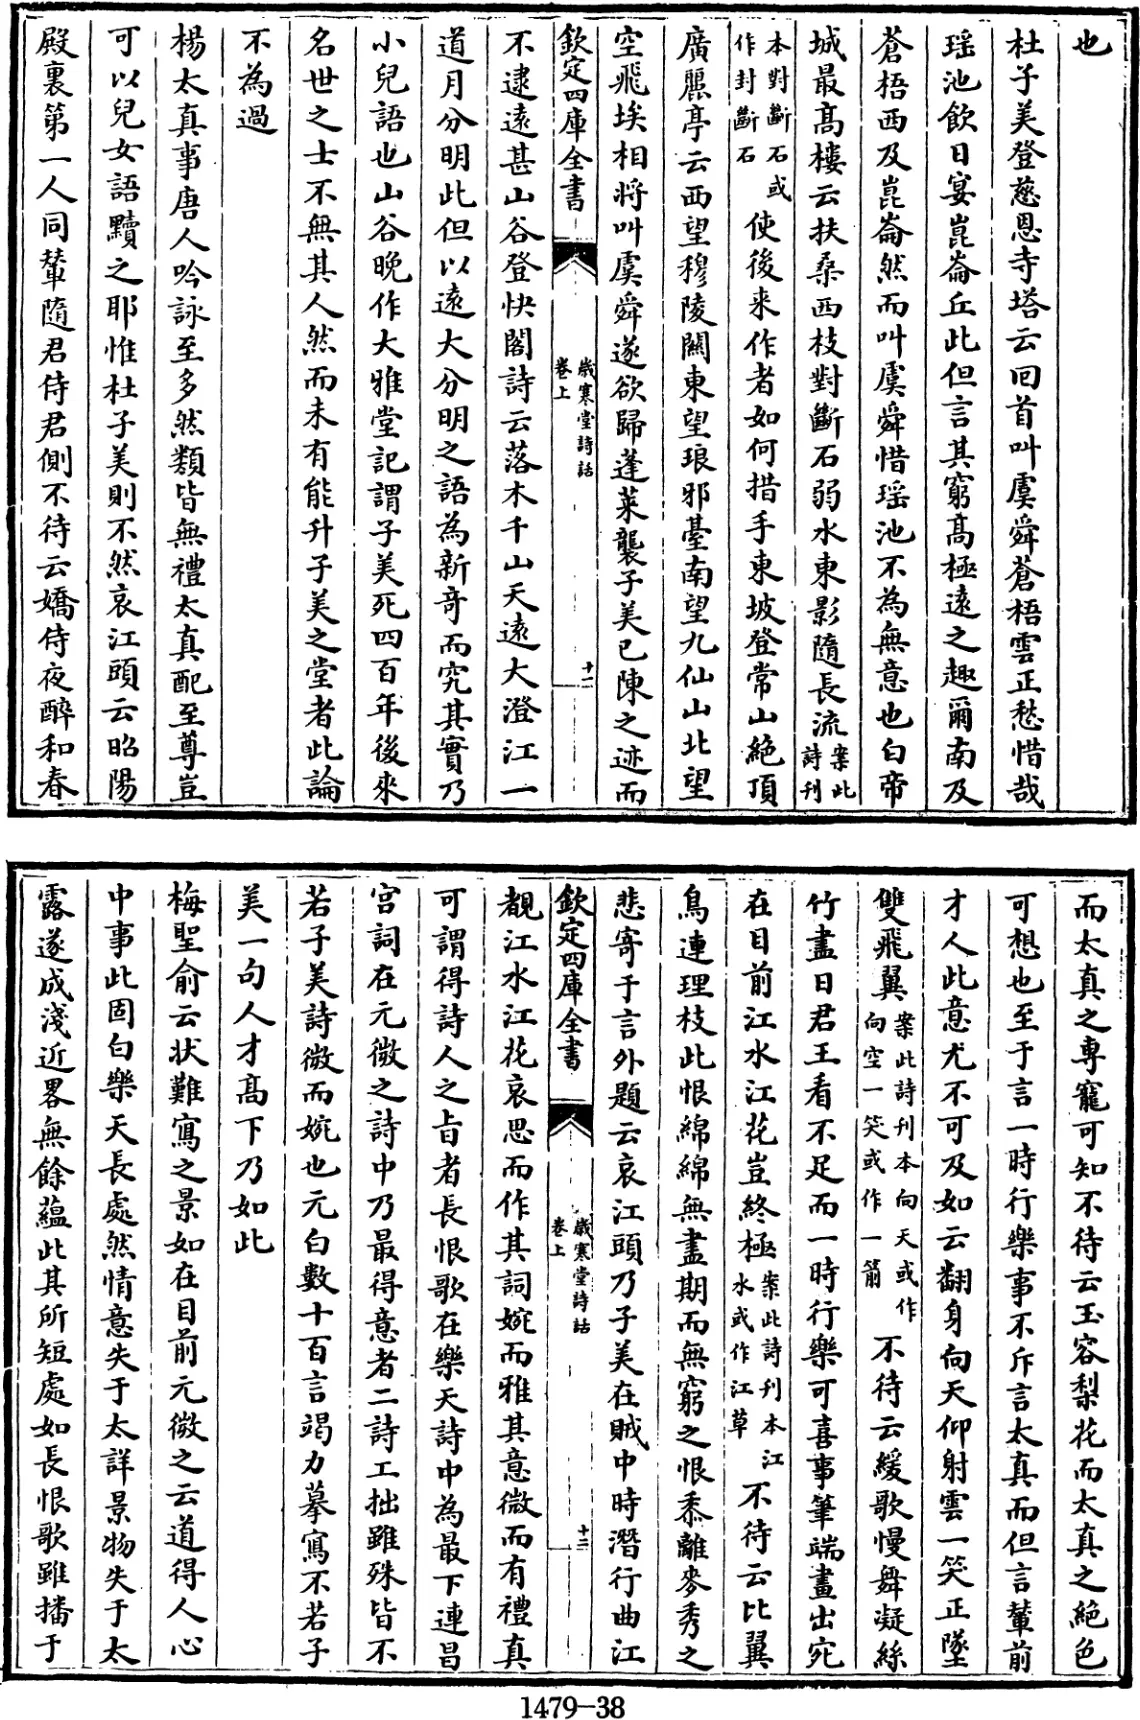 也
杜子美登慈恩寺塔云回首叫虞舜蒼梧雲正愁惜哉
瑶池飲日宴崑崙丘此但言其窮髙極遠之趣爾南及
蒼梧西及崑崙然而叫虞舜惜瑶池不為無意也白帝
城最髙樓云扶桑西枝對斷石弱水東影隨長流案此詩刋
本對斷石或作封斷石使後來作者如何措手東坡登常山絶頂
廣麗亭云西望穆陵闗東望琅邪臺南望九仙山北望
空飛埃相將叫虞舜遂欲歸蓬萊襲子美已陳之迹而
欽定四庫全書
歲寒堂詩話
卷上
十二
不逮逺甚山谷登快閣詩云落木千山天逺大澄江一
道月分明此但以逺大分明之語為新竒而究其實乃
小兒語也山谷晩作大雅堂記謂子美死四百年後來
名世之士不無其人然而未有能升子美之堂者此論
不為過
楊太真事唐人吟詠至多然類皆無禮太真配至尊豈
可以兒女語黷之耶惟杜子美則不然哀江頭云昭陽
殿裏第一人同輦隨君侍君側不待云嬌侍夜醉和春
而太真之專寵可知不待云玉容梨花而太真之絶色
可想也至于言一時行樂事不斥言太真而但言輦前
才人此意尤不可及如云翻身向天仰射雲一笑正墜
雙飛翼案此詩刋本向天或作向空一笑或作一箭不待云緩歌慢舞凝絲
竹盡日君王看不足而一時行樂可喜事筆端畫出宛
在目前江水江花豈終極案此詩刋本江水或作江草不待云比翼
鳥連理枝此恨綿綿無盡期而無窮之恨黍離麥秀之
悲寄于言外題云哀江頭乃子美在賊中時潛行曲江
欽定四庫全書
歲寒堂詩話
卷上
十三
覩江水江花哀思而作其詞婉而雅其意微而有禮真
可謂得詩人之旨者長恨歌在樂天詩中為最下連昌
宫詞在元微之詩中乃最得意者二詩工拙雖殊皆不
若子美詩微而婉也元白數十百言竭力摹寫不若子
美一句人才髙下乃如此
梅聖俞云状難寫之景如在目前元微之云道得人心
中事此固白樂天長處然情意失于太詳景物失于太
露遂成淺近畧無餘藴此其所短處如長恨歌雖播于
1479-38